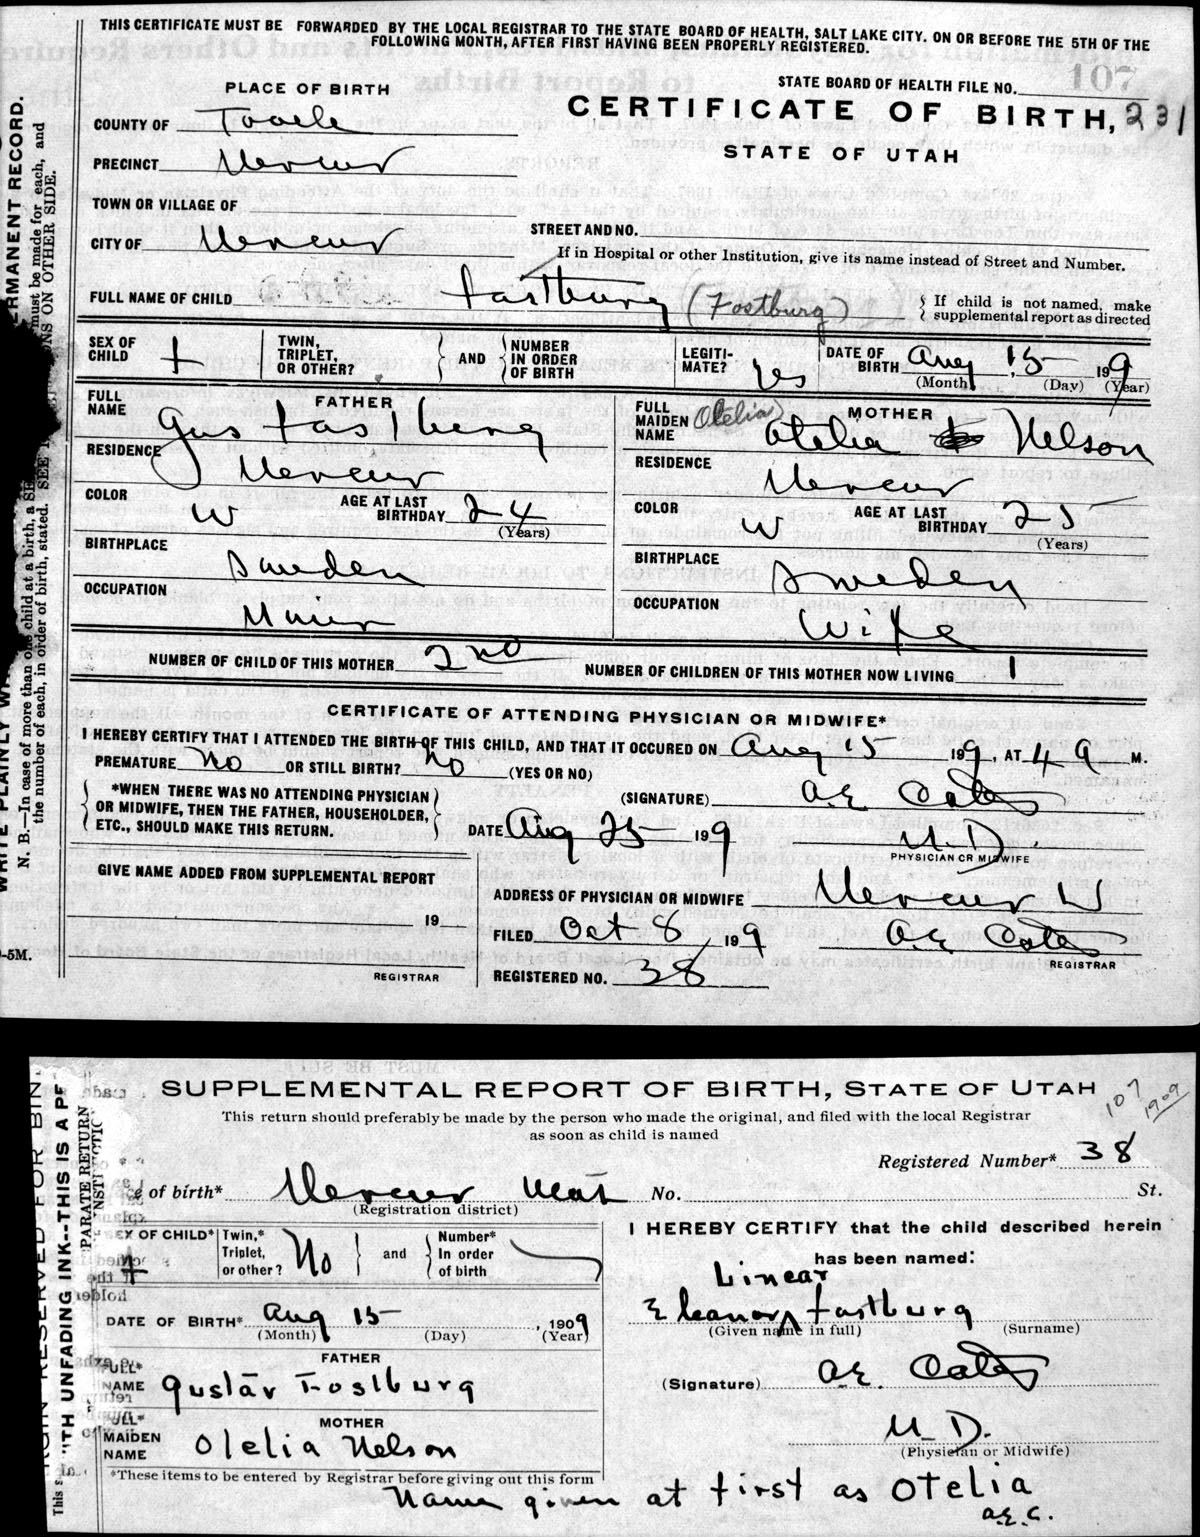 THIS CERTIFICATE MUST BE FORWARDED BY THE LOCAL REGISTRAR TO THE STATE BOARD OF HEALTH, SALT LAKE CITY. ON OR BEFORE THE 5TH OF THE
FOLLOWING MONTH, AFTER FIRST HAVING BEEN PROPERLY REGISTERED.
107
STATE BOARD OF HEALTH FILE NO.
PLACE OF BIRTH
CERTIFICATE OF BIRTH, 231
STATE OF UTAH
COUNTY OF Tooele
PRECINCT Mercur
TOWN OR VILLAGE OF
CITY OF Mercur
STREET AND NO.
If in Hospital or other Institution, give its name instead of Street and Number.
FULL NAME OF CHILD Fastburg (Fostburg)
If child is not named, make
supplemental report as directed
SEX OF
CHILD f
TWIN,
TRIPLET,
OR OTHER?
AND
NUMBER
IN ORDER
OF BIRTH
LEGITI-
MATE? yes
DATE OF
BIRTH Aug 15 1909
(Month) (Day) (Year)
FATHER
FULL
NAME Gus Fastburg
RESIDENCE Mercur
COLOR W
AGE AT LAST
BIRTHDAY 24
(Years)
BIRTHPLACE Sweden
OCCUPATION Miner
MOTHER
FULL
MAIDEN
NAME (Otelia) Otelia Nelson
RESIDENCE Mercur
COLOR W
AGE AT LAST
BIRTHDAY 25
(Years)
BIRTHPLACE Sweden
OCCUPATION Wife
NUMBER OF CHILD OF THIS MOTHER 2nd
NUMBER OF CHILDREN OF THIS MOTHER NOW LIVING 1
CERTIFICATE OF ATTENDING PHYSICIAN OR MIDWIFE*
I HEREBY CERTIFY THAT I ATTENDED THE BIRTH OF THIS CHILD, AND THAT IT OCCURED ON Aug 15 199, AT 4 9 M.
PREMATURE No OR STILL BIRTH? No (YES OR NO)
*WHEN THERE WAS NO ATTENDING PHYSICIAN
OR MIDWIFE, THEN THE FATHER, HOUSEHOLDER,
ETC., SHOULD MAKE THIS RETURN.
(SIGNATURE) A.E. Coates
DATE Aug 25 199
M.D.
PHYSICIAN OR MIDWIFE
GIVE NAME ADDED FROM SUPPLEMENTAL REPORT
19
REGISTRAR
ADDRESS OF PHYSICIAN OR MIDWIFE Mercur
FILED Oct 8, 199
A.E. Coates
REGISTRAR
REGISTERED NO. 38
-5M.
N. B.—In case of more than one child at a birth, a SE
must be made for each, and
the number of each, in order of birth, stated. SEE
ONS ON OTHER SIDE.
WRITE PLAINLY
ERMANENT RECORD.
SUPPLEMENTAL REPORT OF BIRTH, STATE OF UTAH
107
1909
This return should preferably be made by the person who made the original, and filed with the local Registrar
as soon as child is named
Registered Number* 38
e of birth* Mercur Utah No. St.
(Registration district)
EX OF CHILD* f
Twin,*
Triplet,
or other? No
and
Number*
In order
of birth
I HEREBY CERTIFY that the child described herein
has been named:
Linear
Eleanora Fastburg
(Given name in full) (Surname)
DATE OF BIRTH* Aug 15, 1909
(Month) (Day) (Year)
FATHER
FULL*
NAME Gustav Fostburg
(Signature) A.E. Coates
M.D.
(Physician or Midwife)
MOTHER
ULL*
MAIDEN
NAME Otelia Nelson
*These items to be entered by Registrar before giving out this form
Name given at first as Otelia
A.E.C.
RGIN RESERVED FOR BIN
TH UNFADING INK--THIS IS A PE
PARATE RETURN